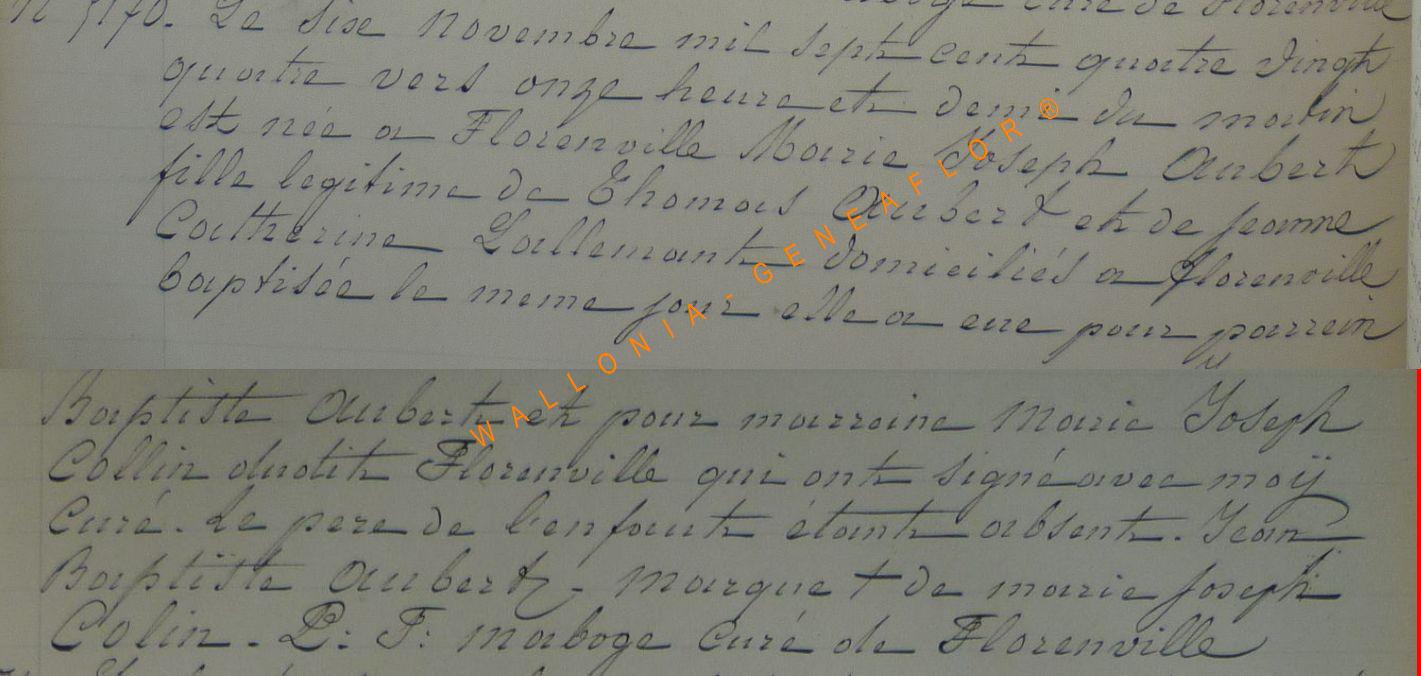 maboge curé de Florenville
N 5170. Le six Novembre mil sept cent quatre vingt
quatre vers onze heure et demi du matin
est née a Florenville Marie Joseph Aubert
fille legitime de Thomas Aubert et de jeanne
Catherine Lallemant domiciliés a florenville
baptisée le meme jour elle a eue pour parrein
Baptiste Aubert et pour marraine Marie Joseph
Collin dudit Florenville qui ont signé avec moÿ
Curé. Le pere de l'enfant étant absent. Jean
Baptiste Aubert. Marque + de marie joseph
Colin. P: F: maboge Curé de Florenville
WALLONIA-GENEAFLOR®